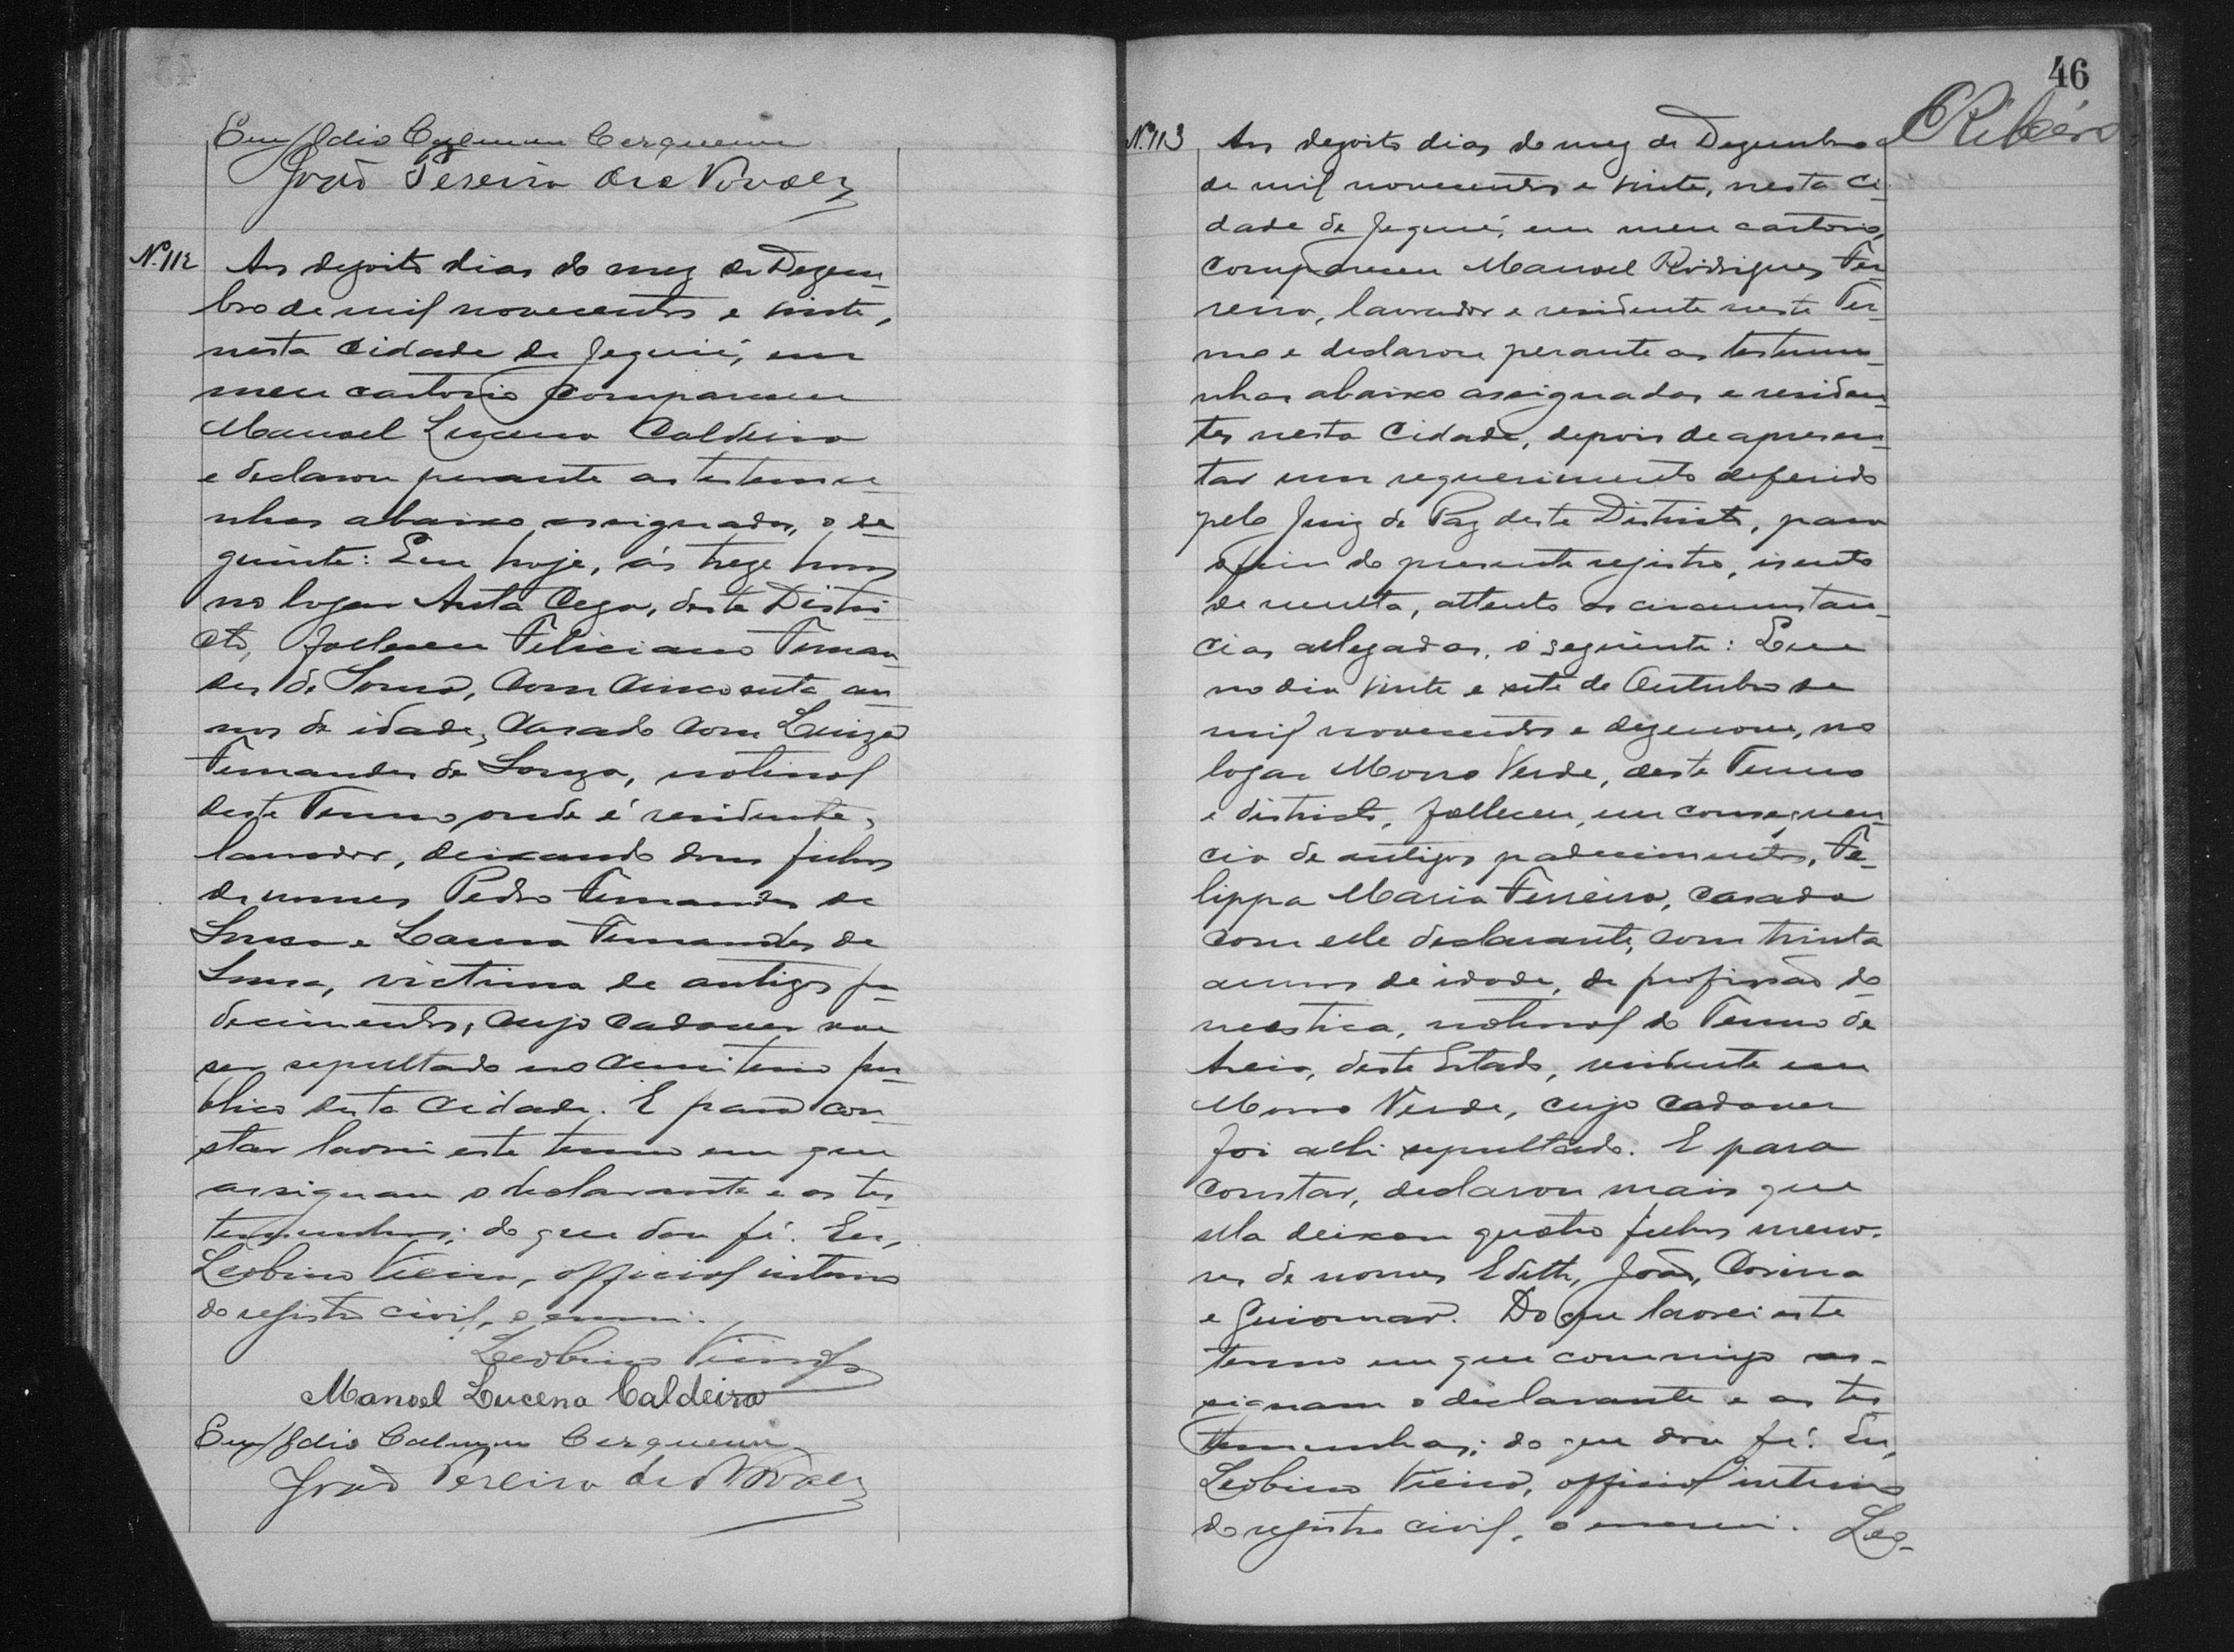 Emygdio Calmon Cerqueira
João Pereira de Novaes
Nº 112 Aos dezoito dias do mez de Dezem-
bro de mil novecentos e vinte,
nesta cidade de Jequié, em
meu cartorio compareceu
Manoel Lucena Caldeira
e declarou perante as testemu-
nhas abaixo assignadas, o se-
guinte: Que hoje, ás treze horas
no logar Anta Cega, deste Distri-
cto, falleceu Feliciano Fernan-
des de Souza, com cincoenta an-
nos de idade, casado com Luiza
Fernandes de Souza, natural
deste Termo onde é residente,
lavrador, deixando dous filhos
de nomes Pedro Fernandes de
Souza e Laura Fernandes de
Souza, victima de antigos pa-
decimentos, cujo cadaver vae
ser sepultado no cemiterio pu-
blico desta cidade. E para con-
star lavrei este termo em que
assignam o declarante e as tes-
temunhas; do que dou fé. Eu,
Leobino Vieira, official interino
do registro civil, o escrevi.
Leobino Vieira
Manoel Lucena Caldeira
Emygdio Calmon Cerqueira
João Pereira de Novaes
46
CRibeiro
Nº 113 Aos dezoito dias do mez de Dezembro
de mil novecentos e vinte, nesta ci-
dade de Jequié, em meu cartorio,
compareceu Manoel Rodrigues Fer-
reira, lavrador e residente neste Ter-
mo e declarou perante as testemu-
nhas abaixo assignadas e residen-
tes nesta Cidade, depois de apresen-
tar um requerimento deferido
pelo Juiz de Paz deste Districto, para
o fim do presente registro, isento
de multa, attento as circumstan-
cias allegadas, o seguinte: Que
no dia vinte e sete de Outubro de
mil novecentos e dezenove, no
logar Morro Verde, deste Termo
e districto, falleceu, em consequen-
cia de antigos padecimentos, Fe-
lippa Maria Ferreira, casada
com elle declarante, com trinta
annos de idade, de profissão do-
mestica, natural do Termo de
Areia, deste Estado, residente em
Morro Verde, cujo cadaver
foi alli sepultado. E para
constar, declarou mais que
ella deixou quatro filhos meno-
res de nomes Edith, João, Corina
e Guiomar. Do que lavrei este
termo em que commigo as-
signam o declarante e as tes-
temunhas; do que dou fé. Eu,
Leobino Vieira, official interino
do registro civil, o escrevi. Leo-